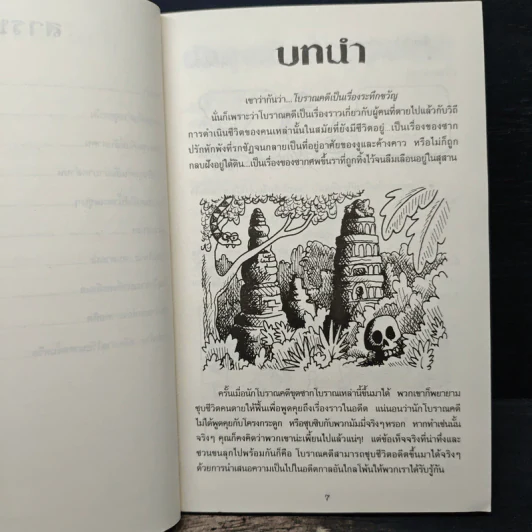 สาร
บทนำ
เขาว่ากันว่า...โบราณคดีเป็นเรื่องระทึกขวัญ
นั่นก็เพราะว่าโบราณคดีเป็นเรื่องราวเกี่ยวกับผู้คนที่ตายไปแล้วกับวิถี
การดำเนินชีวิตของคนเหล่านั้นในสมัยที่ยังมีชีวิตอยู่...เป็นเรื่องของซาก
ปรักหักพังที่รกชัฏจนกลายเป็นที่อยู่อาศัยของงูและค้างคาว หรือไม่ก็ถูก
กลบฝังอยู่ใต้ดิน...เป็นเรื่องของซากศพขึ้นราที่ถูกทิ้งไว้จนลืมเลือนอยู่ในสุสาน
ครั้นเมื่อนักโบราณคดีขุดซากโบราณเหล่านี้ขึ้นมาได้ พวกเขาก็พยายาม
ชุบชีวิตคนตายให้ฟื้นเพื่อพูดคุยถึงเรื่องราวในอดีต แน่นอนว่านักโบราณคดี
ไม่ได้พูดคุยกับโครงกระดูก หรือซุบซิบกับพวกมัมมี่จริงๆหรอก หากทำเช่นนั้น
จริงๆ คุณก็คงคิดว่าพวกเขาน่ะเพี้ยนไปแล้วแน่ๆ! แต่ข้อเท็จจริงที่น่าทึ่งและ
ชวนขนลุกไปพร้อมกันก็คือ โบราณคดีสามารถชุบชีวิตอดีตขึ้นมาได้จริงๆ
ด้วยการนำเสนอความเป็นไปในอดีตกาลอันไกลโพ้นให้พวกเราได้รับรู้กัน
7